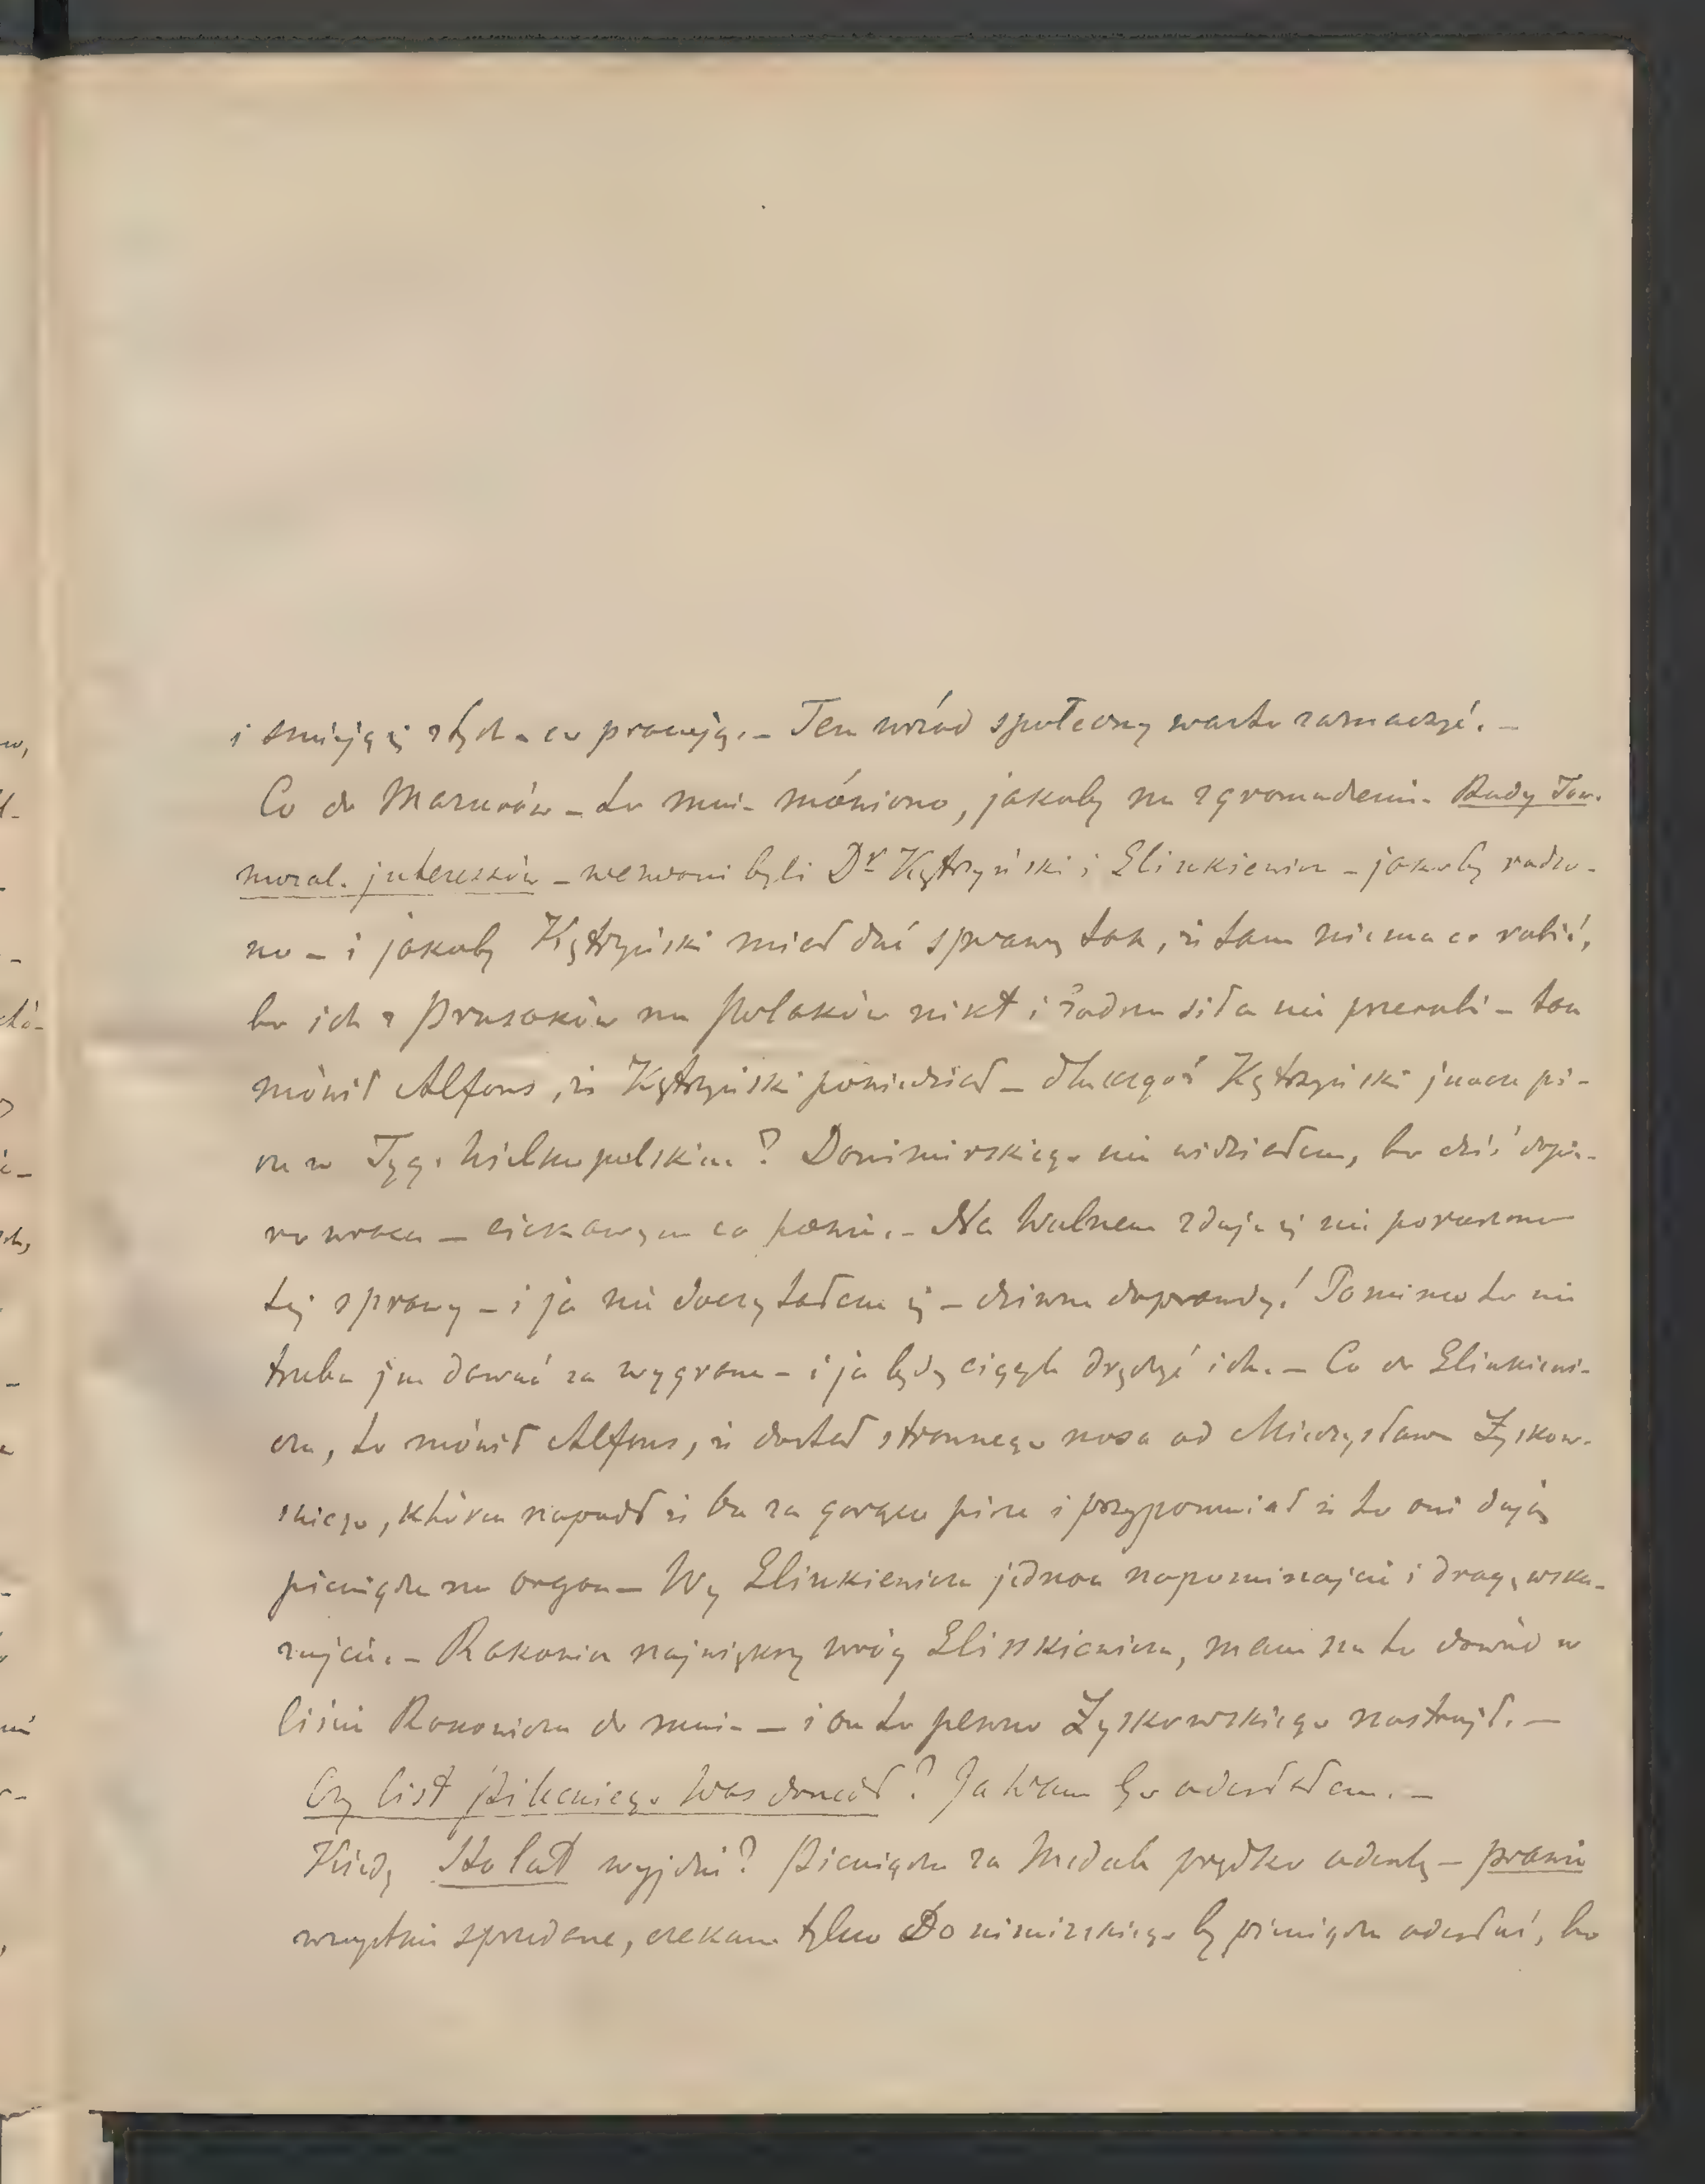 i śmieją się z tych - co pracują. - Ten wrzód społeczny warto zaznaczyć. -
Co do Mazurów - to mnie mówiono, jakoby na zgromadzenie Rady Tow.
moral. interessów - wezwani byli Dr Kętrzyński i Glinkiewicz - jakoby radzo-
no - i jakoby Kętrzyński miał dać sprawę tak, iż tam niema co robić,
bo ich z Prusaków na Polaków nikt i żadna siła nie przerobi - tak
mówił Alfons, iż Kętrzyński powiedział - dlaczegoż Kętrzyński inacz pi-
sze w Tyg. Wielkopolskim? Donimirskiego nie widziałem, bo dziś dopie-
ro wraca - ciekawym co powie. - Na Walnem zdaje się nie poruszono
tej sprawy - i ja nie doczytałem się - dziwne doprawdy! Pomimo to nie
trzeba jej dawać za wygraną - i ja będę ciągle drążyć ich. - Co do Glinkiewi-
cza, to mówił Alfons, iż dostał strasznego nosa od Mieczysława Łyskow-
skiego, który napadł iż on za gorąco pisze i przypomniał iż to oni dają
pieniądze na organ - Wy Glinkiewicza jednak napominajcie i drogę wska-
zujcie. - Rakowicz największy wróg Glinkiewicza, mam na to dowód w
liście Rakowicza do mnie - i on to pewno Łyskowskiego nastroił. -
Czy list Pileckiego Was doszedł? Ja Wam go odesłałem. -
Kiedy Sto lat wyjdzie? Pieniądze za Medale prędko odeślę - prawie
wszystkie sprzedane, czekam tylko Donimirskiego by pieniądze odesłać, bo